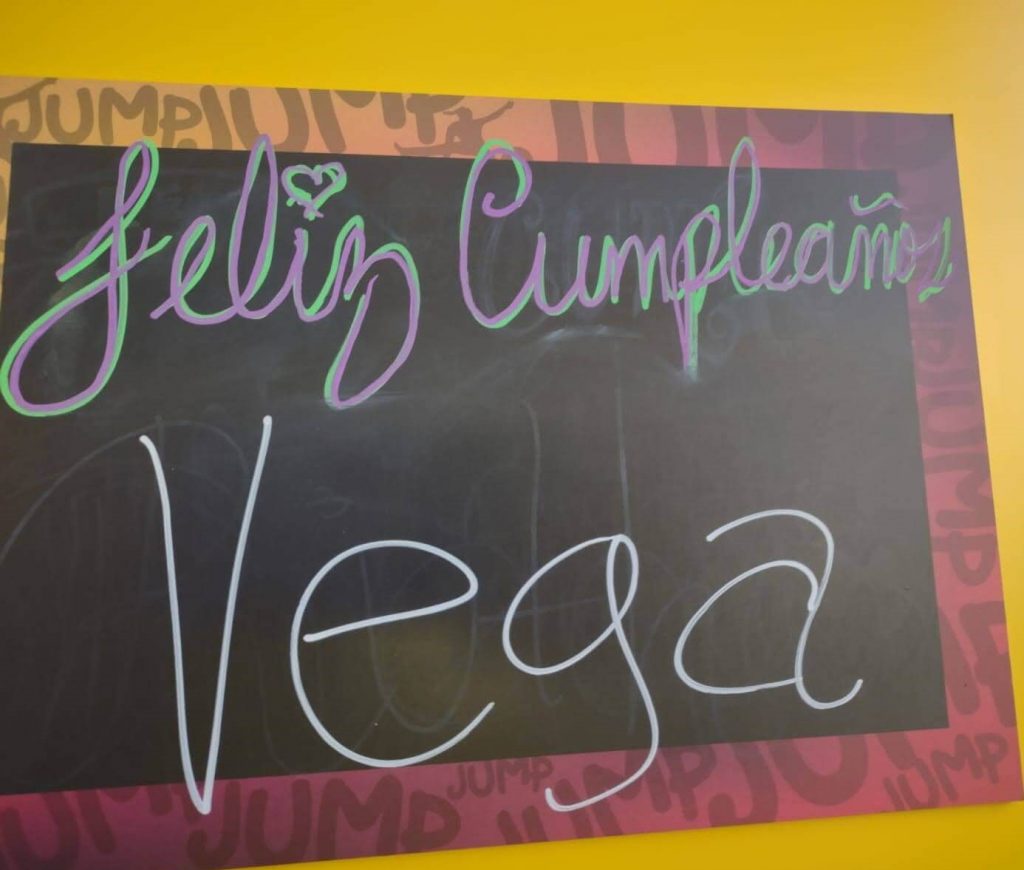 JUMP JUMP JUMP JUMP
Feliz Cumpleaños
Vega
JUMP
JUMP
JUMP JUMP JUMP JUMP JUMP